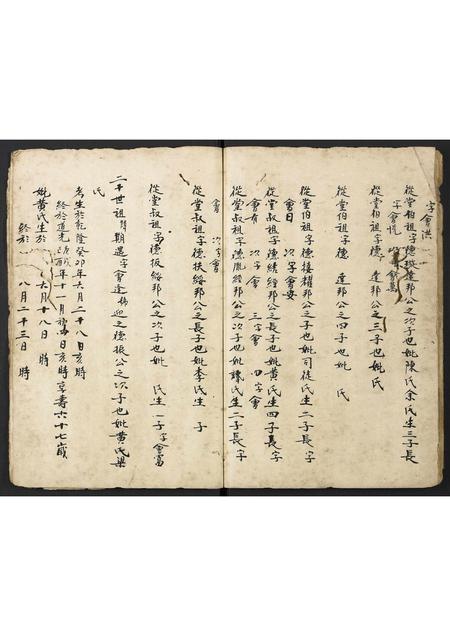 字會洪
從堂伯祖字德 達邦公之次子也妣陳氏余氏生三子長
字會悅
從堂伯祖字德 達邦公之三子也妣氏
從堂伯祖字德 達邦公之四子也妣 氏
從堂伯祖字德接耀邦公之次子也妣司徒氏生二子長字
會日 次字會安
從堂叔祖字德緒經邦公之長子也妣黃氏生四子長字
會有 次字會 三字會 四字會
從堂叔祖字德胤經邦公之次子也妣譚氏生二子長字
會 次字會
從堂叔祖字德扶綏邦公之長子也妣李氏生 子
從堂叔祖字德振綏邦公之次子也妣 氏生一子字會富
二十世祖諱期遇字會逢佈迎之德振公之次子也妣黃氏梁
氏
考生於乾隆癸卯年六月二十八日亥時
終於道光己酉年十一月初 日亥時享壽六十七歲
妣黃氏生於 六月十八日 時
終於 八月二十三日 時